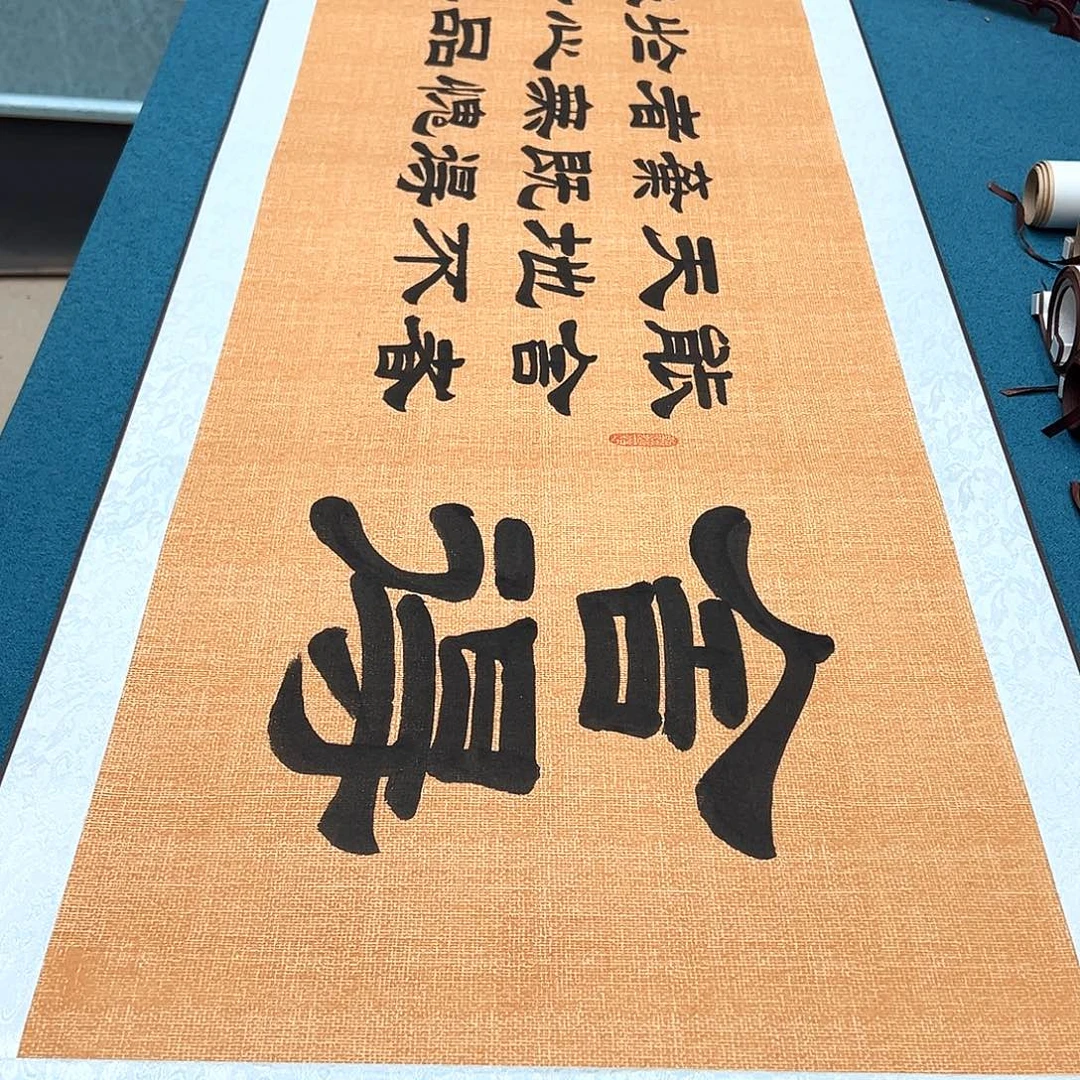 舍得
能舍者
天地不
棄既得
者無愧
於心品